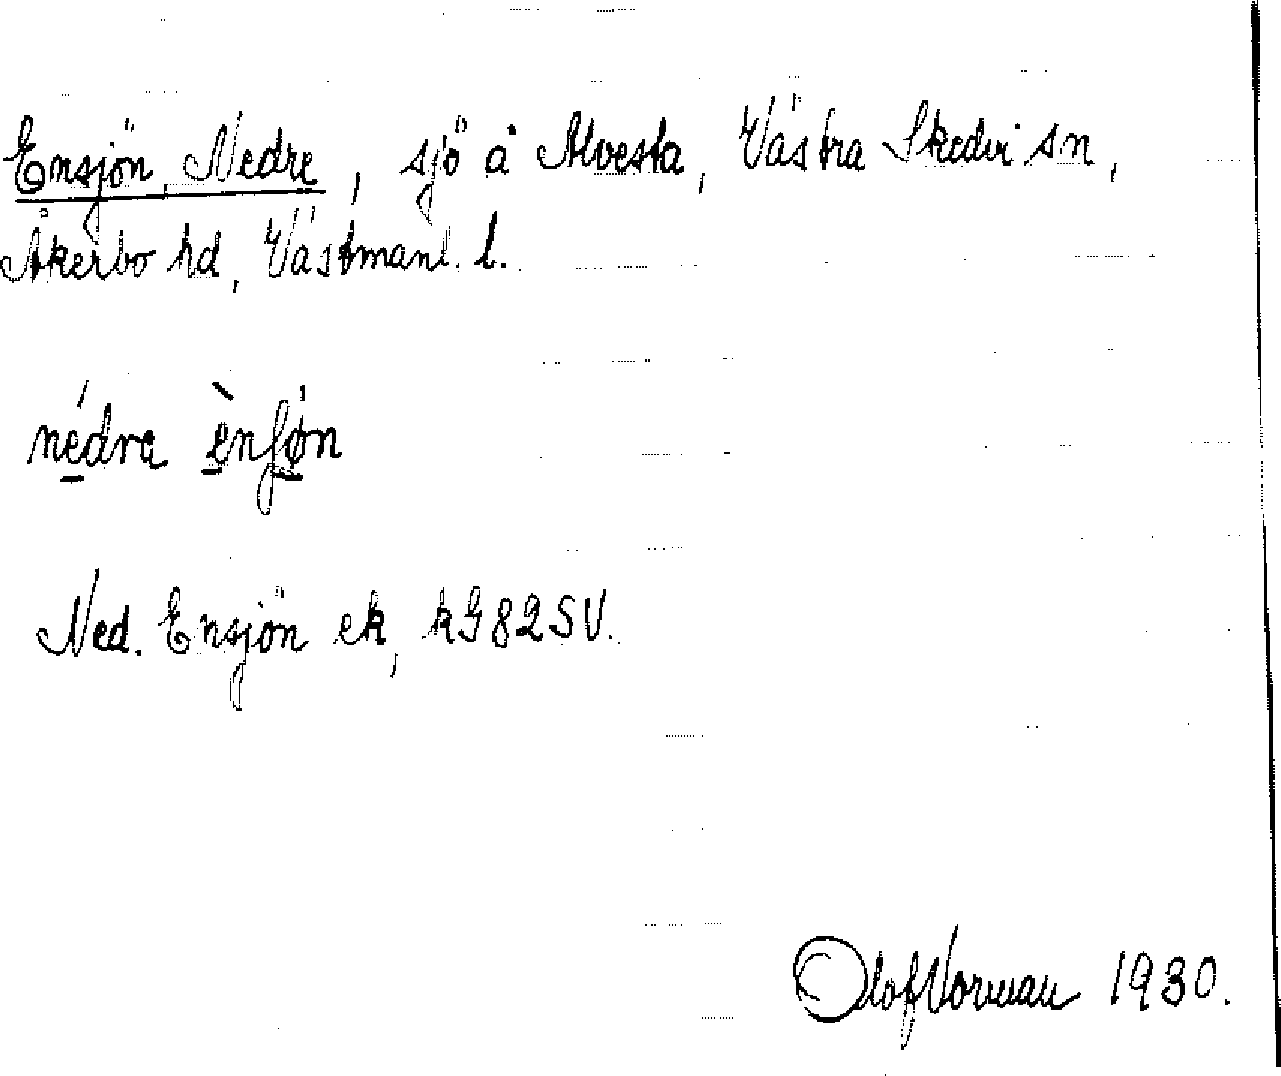 Ensjön, Nedre, sjö å Alvesta, Västra Skedvi sn,
Åkerbo hd, Västmanl. l.
nédra ènʃøn
Ned. Ensjön ek, kG82SV.
Olof Norman 1930.